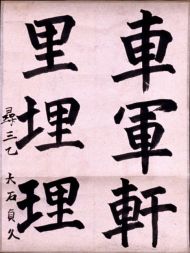 車軍軒
里埋理
尋三乙 大石貞久